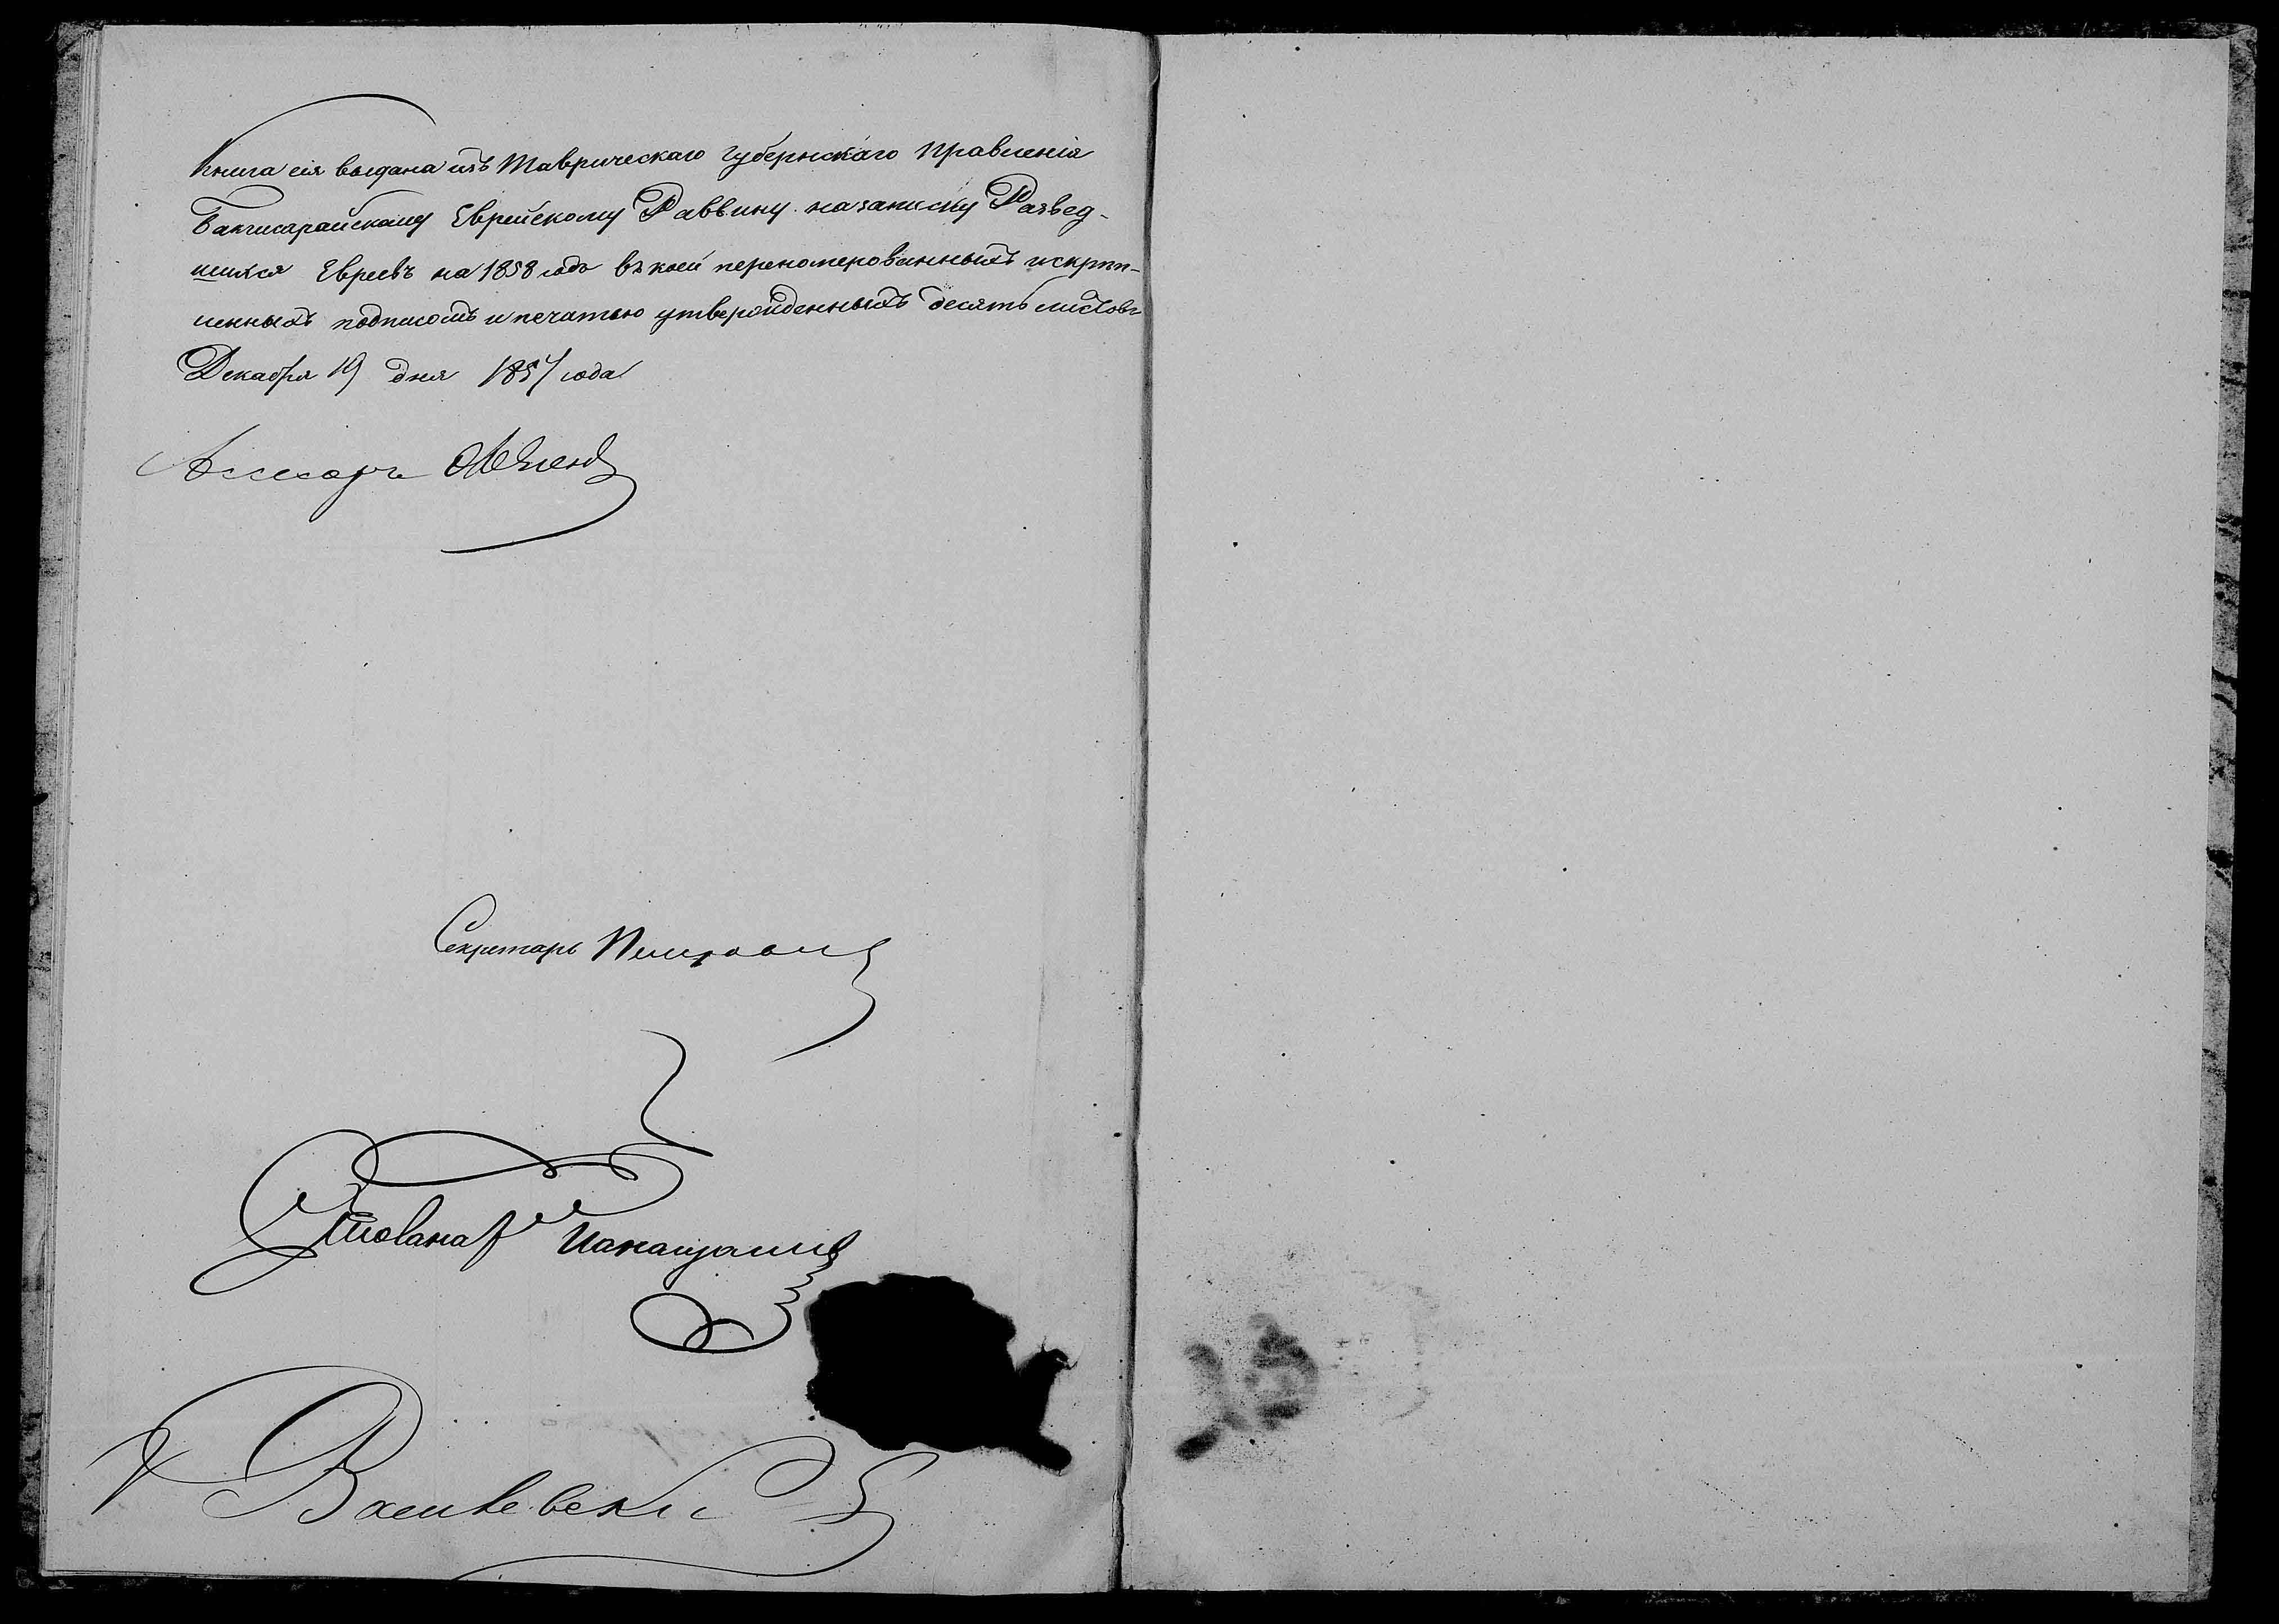 Книга сія выдана изъ Таврическаго Губернскаго Правленія
Бахчисарайскому Еврейскому Раввину на записку Развед-
шихся Евреевъ на 1858 годъ въ коей перенумерованныхъ искреп-
ленныхъ подписомъ и печатью утвержденныхъ десять листовъ
Декабря 19 дня 1857 года
Ассесоръ
Секретарь